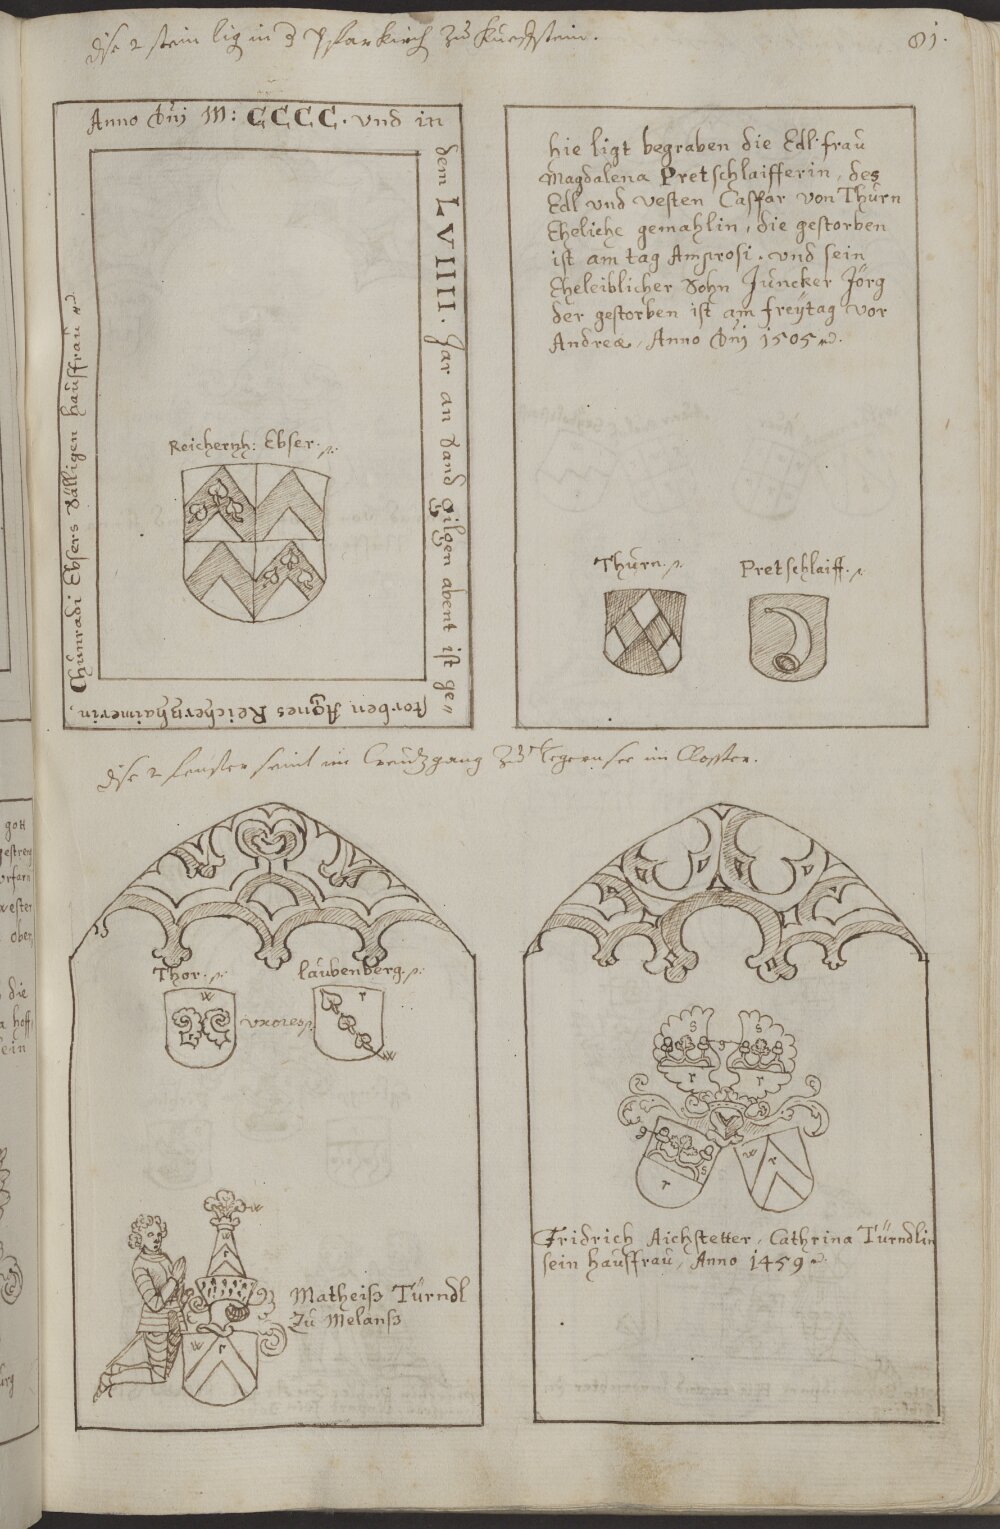 dise 2 stain lig in d Pfarkirch zů Kueffstein.
81.
Anno Dnj M: CCCC. vnd in
dem LVIIII. Jar an Sand Gilgen abent ist ge=
storben Agnes Reichertzhaimerin,
Chünradi Ebsers Sälligen haüsfraü
Reichertzh: Ebser.
hie ligt begraben die Edl fraü
Magdalena Pretschlaifferin, des
Edl vnd vesten Caspar von Thürn
Eheliche gemahlin, die gestorben
ist am tag Amprosi. vnd sein
Eheleiblicher Sohn Jüncker Jörg
der gestorben ist am freÿtag vor
Andreæ, Anno Dnj 1505.
Thürn.
Pretschlaiff.
dise 2 fenster seint im Creützgang zů Tegernsee im Closster.
Thor.
laübenberg.
w
vxores
r
w
w
r
w
r
Matheiß Türndl
Zů Melanß
s
g
s
r
r
g
s
r
w
r
Fridrich Aichstetter, Cathrina Türndlin
sein haüsfraü, Anno 1459